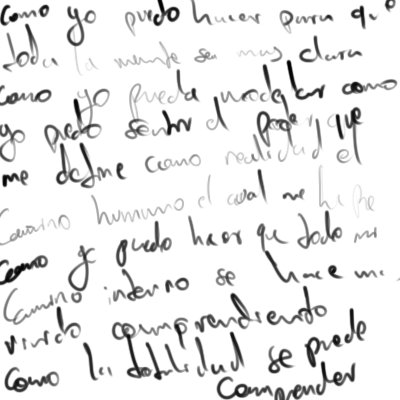 Como yo puedo hacer para que
toda la mente sea mas clara
Como yo pueda modelar como
yo puedo sentir el poder que
me define como realidad el
Camino humano el cual me
Como yo puedo hacer que todo mi
Camino interno se hace
vivido comprendiendo
Como la totalidad se puede
Comprender